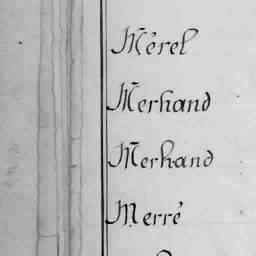 Mérel
Merhand
Merhand
Merré